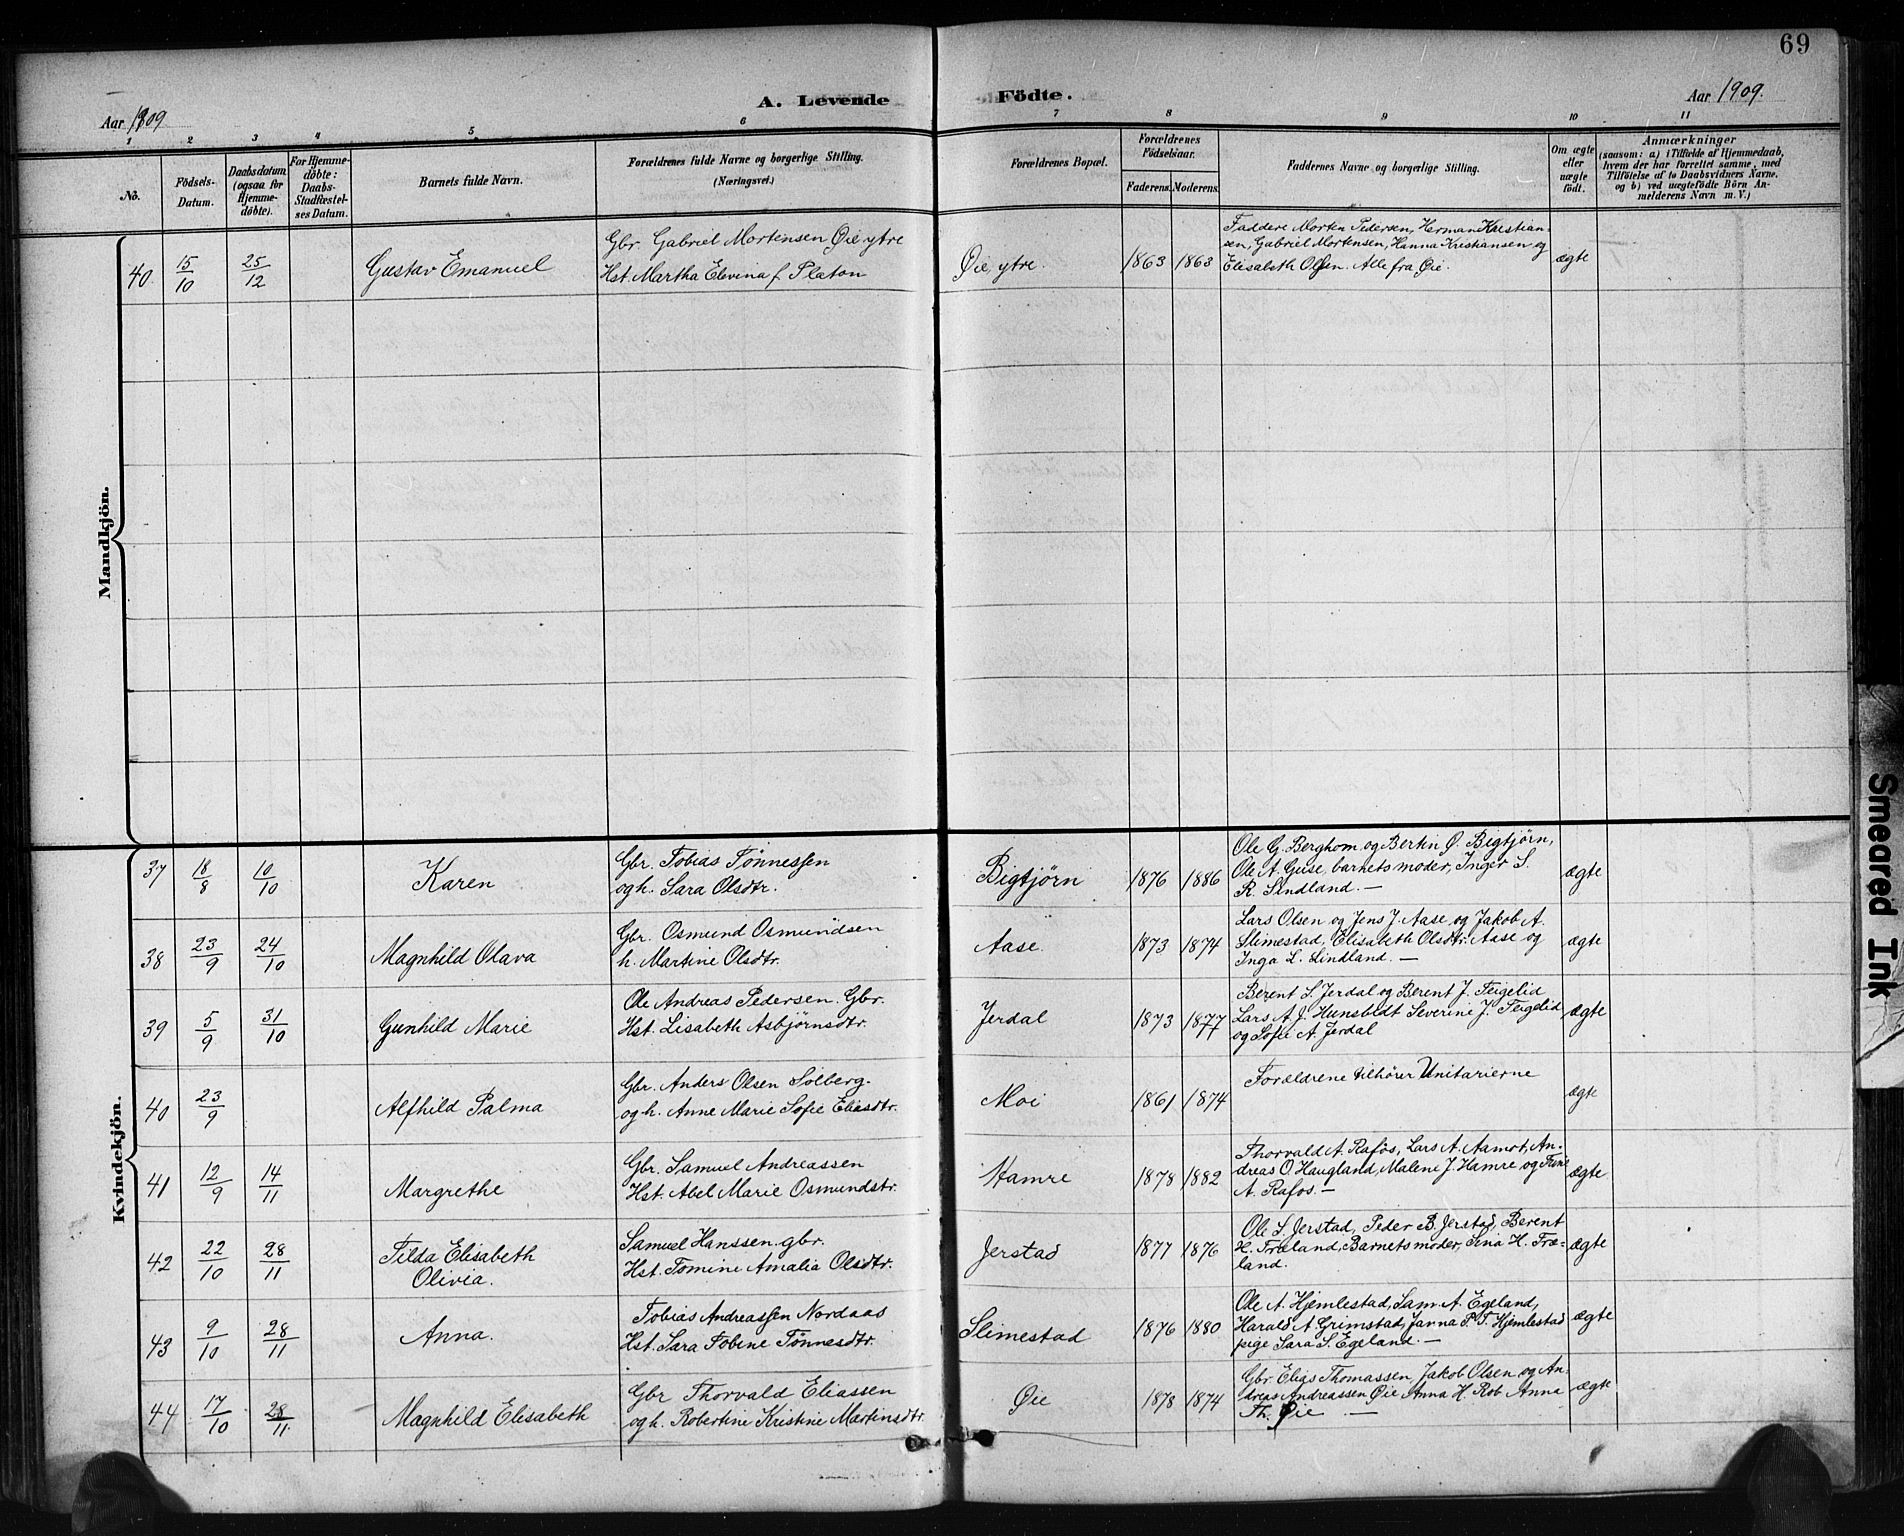 69
A. Levende Födte.
Aar 1909
Aar 1909.
1 2 3 4 5 6 7 8 9 10 11
No.
Födsels-
Datum.
Daabsdatum
(ogsaa for
Hjemme-
döbte).
For Hjemme-
döbte:
Daabs-
Stadfæstel-
ses Datum.
Barnets fulde Navn.
Forældrenes fulde Navne og borgerlige Stilling.
(Næringsvei.)
Forældrenes Bopæl.
Forældrenes
Födselsaar.
Faderens. Moderens.
Faddernes Navne og borgerlige Stilling.
Om ægte
eller
uægte
födt.
Anmærkninger
(saasom: a) i Tilfælde af Hjemmedaab,
hvem der har forrettet samme, med
Tilföielse af to Daabsvidners Navne.
og b) ved uægtefödte Börn An-
melderens Navn m. V.)
Mandkjön.
40. 15/10 25/12 Gustav Emanuel
Gbr. Gabriel Mortensen Øie ytre
Hst. Martha Elevina f. Platon
Øie, ytre. 1863 1863
Faddere Morten Pedersen, Herman Kristian-
sen, Gabriel Mortensen, Hanna Kristiansen og
Elisabeth Olsen. Alle fra Øie.
ægte
Kvindekjön.
37 18/8 10/10 Karen
Gbr. Tobias Tønnessen
og h. Sara Olsdtr.
Bigtjørn 1876 1886
Ole G. Berghom og Bertin Ø. Bigtjørn,
Ole A. Guse, barnets moder, Inger S.
R. Lindland. —
ægte
38 23/9 24/10 Magnhild Olava
Gbr. Osmund Osmundsen
h. Martine Olsdtr.
Aase. 1873 1874
Lars Olsen og Jens J. Aase og Jakob A.
Slimestad, Elisabeth Olsdtr. Aase og
Inga L. Lindland. —
ægte
39 5/9 31/10 Gunhild Marie
Ole Andreas Pedersen. Gbr.
Hst. Lisabeth Asbjørnsdtr.
Jerdal 1873 1877
Berent S. Jerdal og Berent J. Feigelid
Lars A. J. Hunsbedt Severine J. Feigelid
og Sofie A. Jerdal
ægte
40 23/9 Alfhild Palma
Gbr. Anders Olsen Solberg.
og h. Anne Marie Sofie Eliasdtr.
Moi 1861 1874
Forældrene tilhører Unitarierne
ægte
41 12/9 14/11 Margrethe
Gbr. Samuel Andreassen
Hst. Abel Marie Osmundstr.
Hamre 1878 1882
Thorvald A. Rafos, Lars A. Aamot, An-
dreas O. Haugland, Malene J. Hamre og Tine
A. Rafos. —
ægte
42 22/10 28/11 Tilda Elisabeth
Olivia.
Samuel Hanssen. gbr.
Hst. Tomine Amalia Olsdtr.
Jerstad 1877 1876
Ole S. Jerstad, Peder B. Jerstad, Berent
H. Træland, Barnets moder, Sina H. Træ-
land.
ægte
43 9/10 28/11 Anna.
Tobias Andreassen Nordaas
Hst. Sara Tobine Tønnesdtr.
Slimestad 1876 1880
Ole A. Hjemlestad, Sam. A. Egeland,
Harald A. Grimstad, Janna P. T. Hjemlestad
pige Sara S. Egeland. —
ægte
44 17/10 28/11. Magnhild Elisabeth
Gbr Thorvald Eliassen
og h. Robertine Kristine Martinsdtr.
Øie 1878 1874
Gbr. Elias Thomassen, Jakob Olsen og An-
dreas Andreassen Øie Anna H. Rob Anna
Th. Øie —
ægte
Smeared Ink